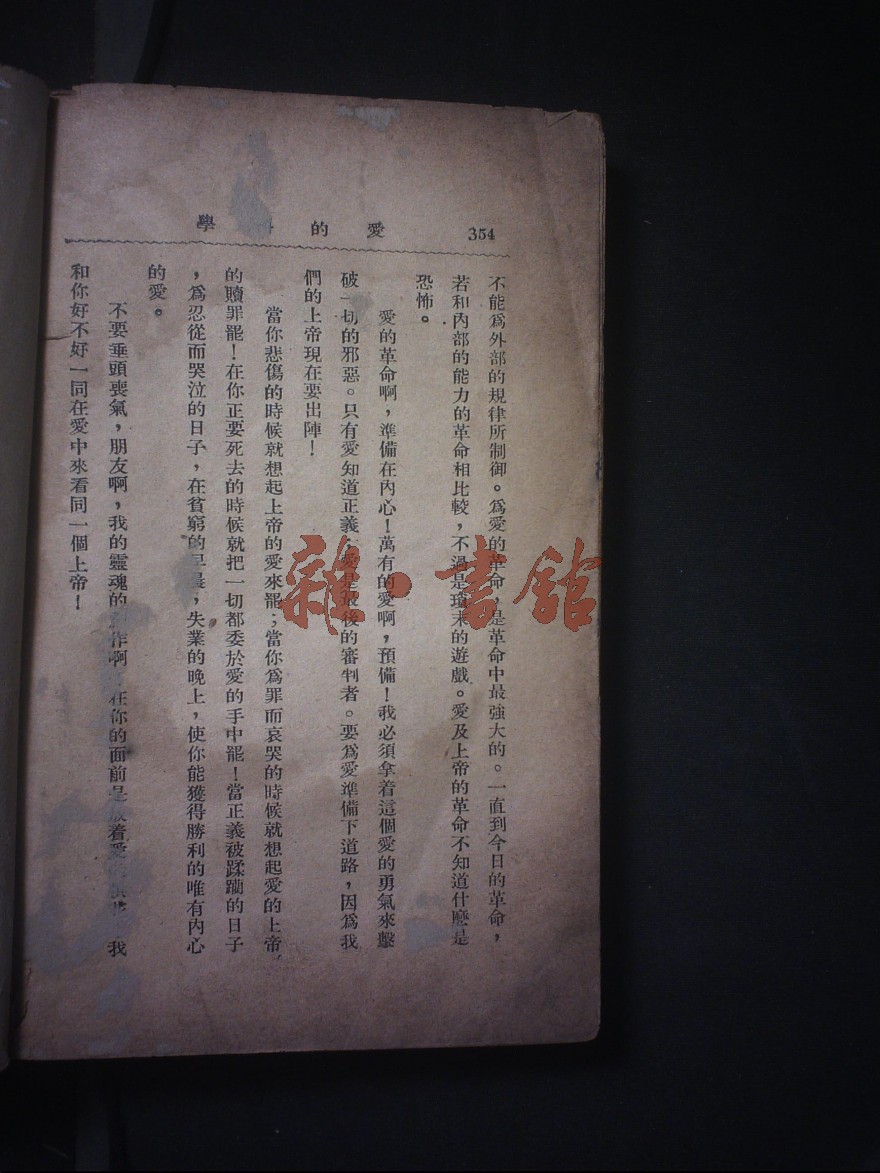 354
愛的學
不能爲外部的規律所制御。爲愛的革命，是革命中最強大的。一直到今日的革命，
若和內部的能力的革命相比較，不過是末的遊戲。愛及上帝的革命不知道什麼是
恐怖。
愛的革命啊，準備在內心！萬有的愛啊，預備！我必須拿着這個愛的勇氣來擊
破一切的邪惡。只有愛知道正義，愛是最後的審判者。要爲愛準備下道路，因爲我
們的上帝現在要出陣！
當你悲傷的時候就想起上帝的愛來罷；當你爲罪而哀哭的時候就想起愛的上帝，
的贖罪罷！在你正要死去的時候就把一切都委於愛的手中罷！當正義被蹂躪的日子
，爲忍從而哭泣的日子，在貧窮的早晨，失業的晚上，使你能獲得勝利的唯有內心
的愛。
不要垂頭喪氣，朋友啊，我的靈魂的作啊！在你的面前是放着愛我
和你好不好一同在愛中來看同一個上帝！
雜·書館